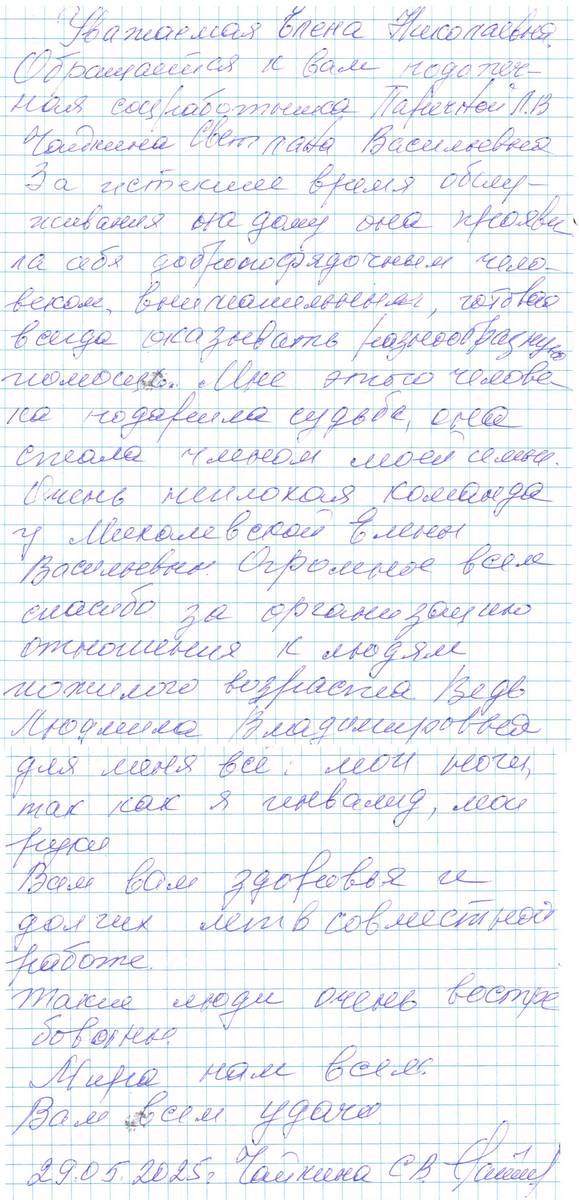 Уважаемая Елена Николаевна
Обращается к вам подопеч-
ная соцработника Паричной Л.В
Чайкина Светлана Васильевна
За истекшее время обслу-
живания на дому она прояви-
ла себя добропорядочным чело-
веком, внимательным, готовая
всегда оказывать разнообразную
помощь. Мне этого челове-
ка подарила судьба, она
стала членом моей семьи.
Очень неплохая команда
у Михалевской Елены
Васильевны. Огромное всем
спасибо за организацию
отношения к людям
пожилого возраста Ведь
Людмила Владимировна
для меня всё: мои ноги,
так как я инвалид, мои
руки
Вам вам здоровья и
долгих лет в совместной
работе.
Такие люди очень востре
бованы.
Мира нам всем.
Вам всем удачи
29.05.2025г Чайкина С.В.